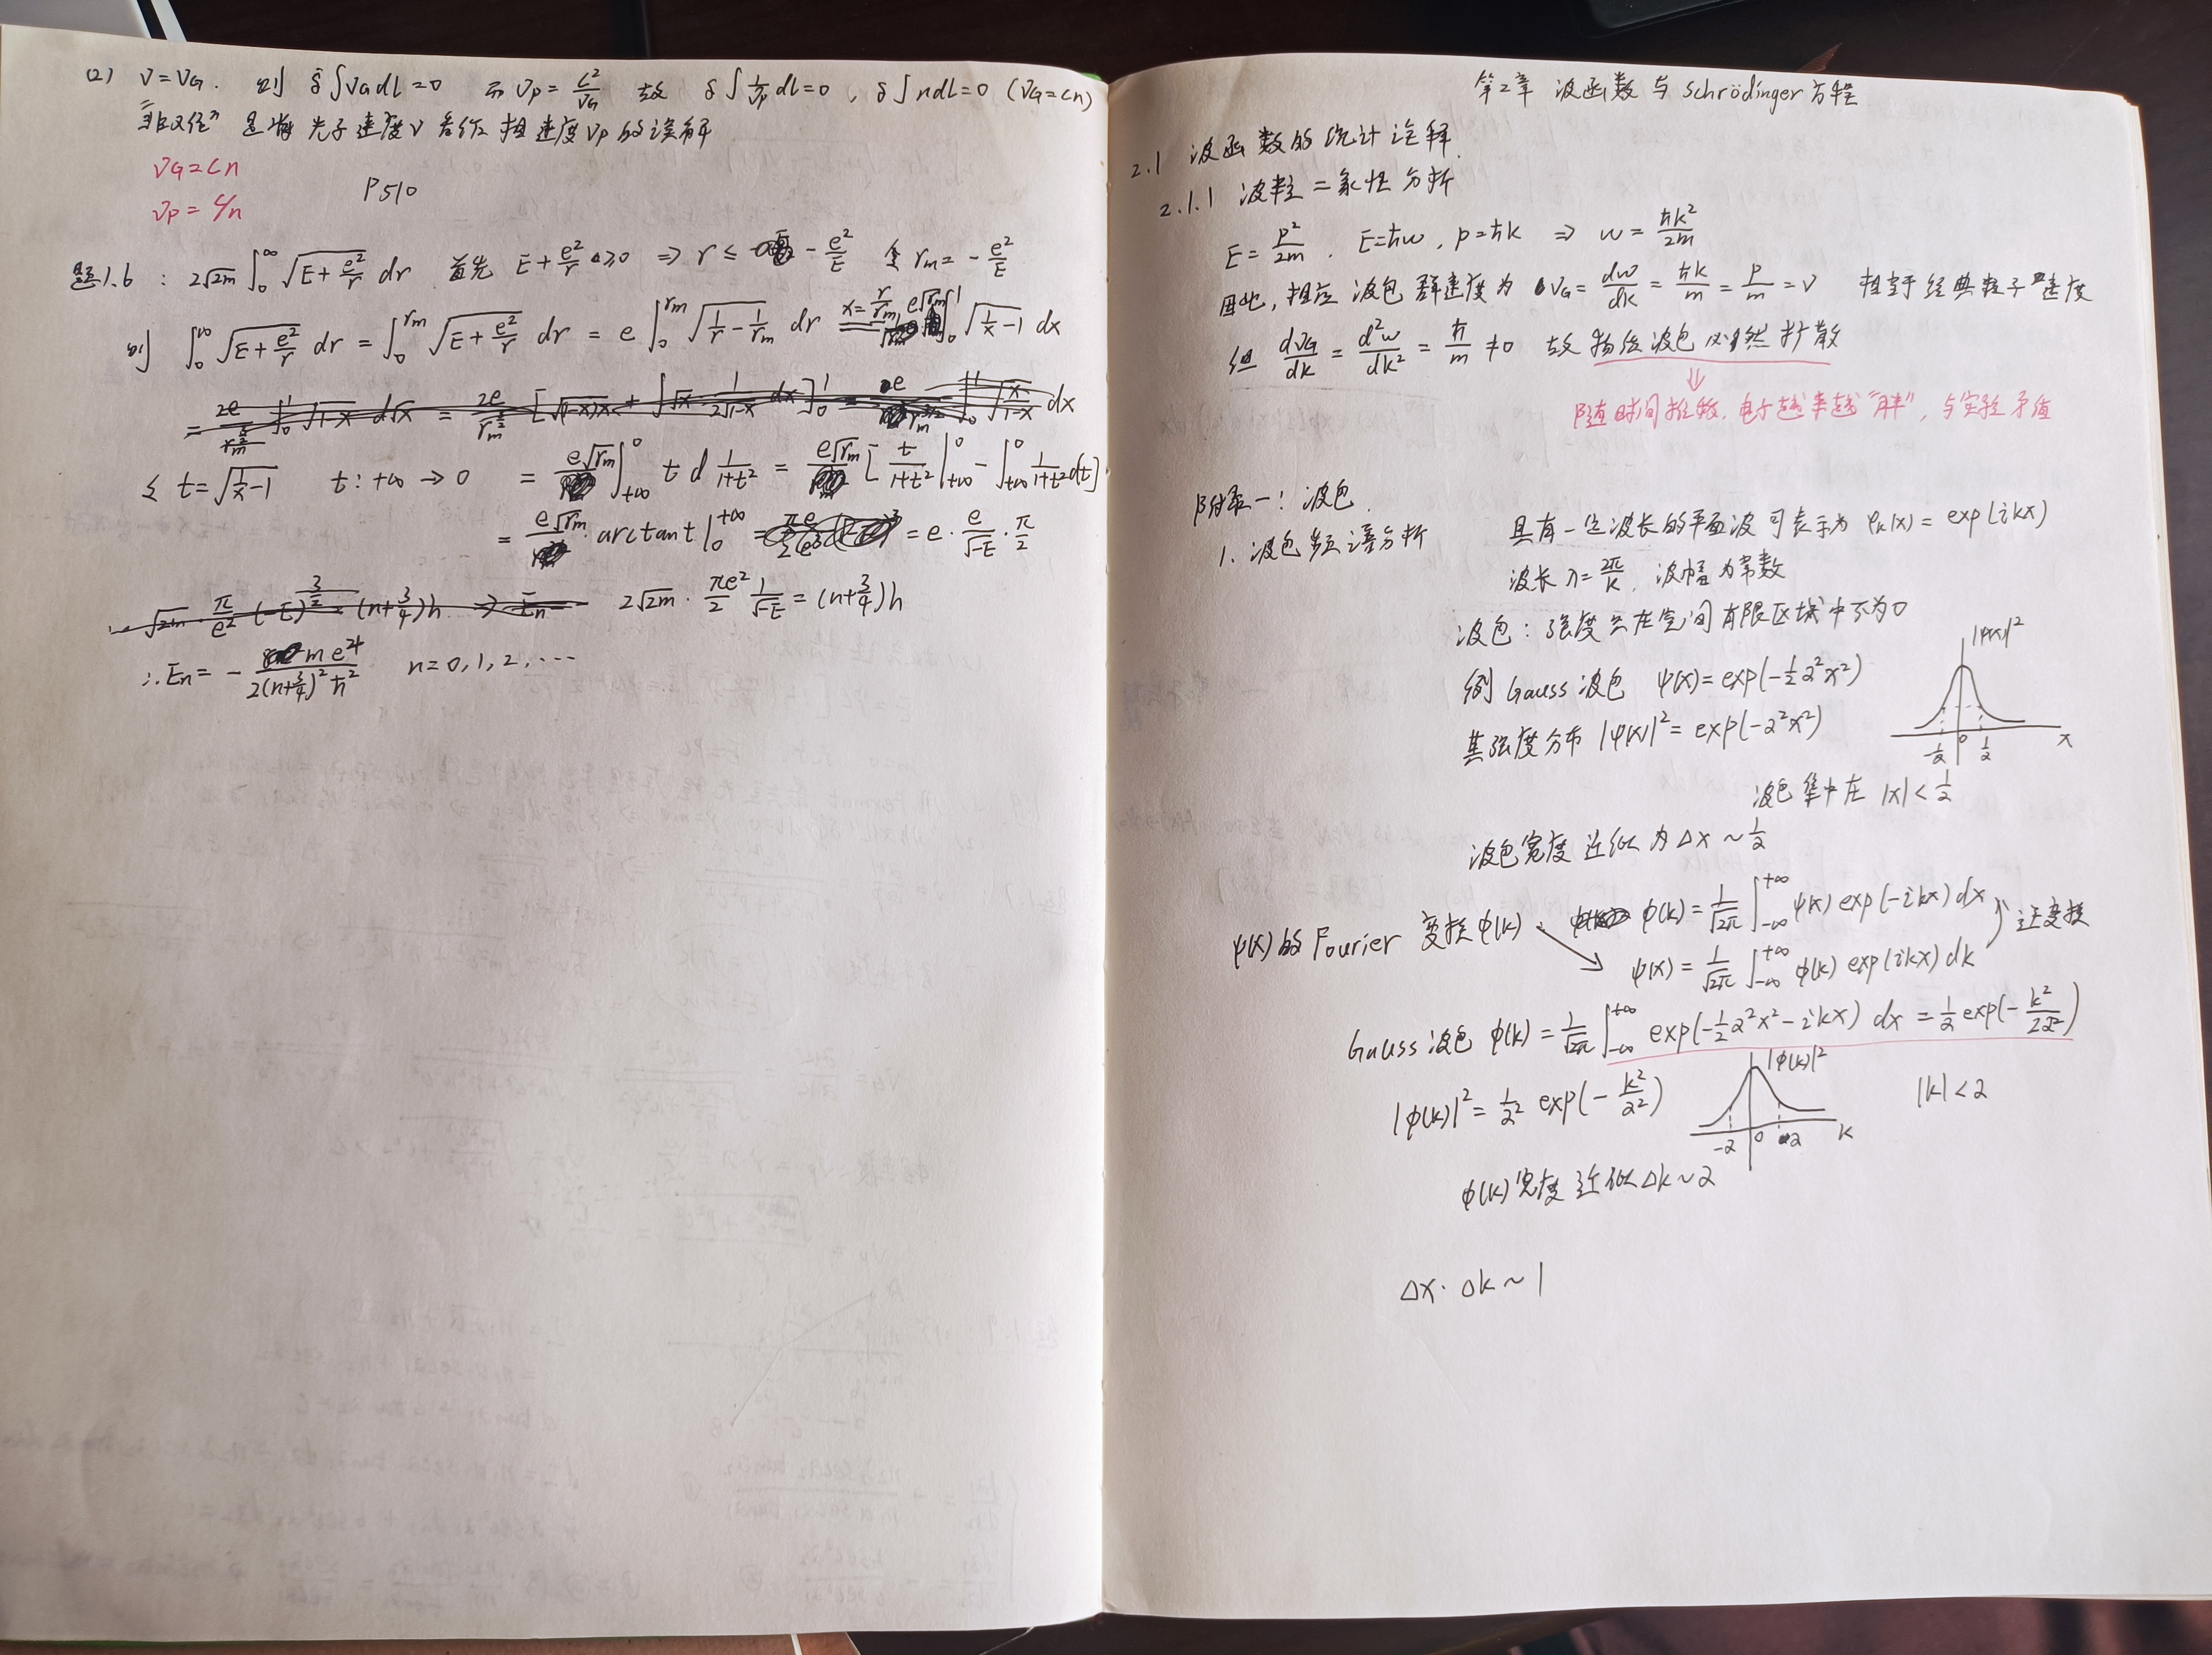 (2) v = v_G. 则 δ∫v_G dl = 0 而 v_p = c²/v_G 故 δ∫1/v_p dl = 0, δ∫n dl = 0 (v_G = cn)
是将光子速度v看作相速度v_p的误解
v_G = cn
v_p = c/n
P510
题1.6: 2√2m ∫₀^∞ √(E + e²/r) dr 首先 E + e²/r ≥ 0 ⇒ r ≤ - e²/E 令 r_m = - e²/E
则 ∫₀^∞ √(E + e²/r) dr = ∫₀^{r_m} √(E + e²/r) dr = e ∫₀^{r_m} √(1/r - 1/r_m) dr x = r/r_m e√r_m ∫₀¹ √(1/x - 1) dx
令 t = √(1/x - 1) t: +∞ → 0 = e√r_m ∫_{+∞}^0 t d 1/(1+t²) = e√r_m [t/(1+t²) |_{+∞}^0 - ∫_{+∞}^0 1/(1+t²) dt]
= e√r_m · arctan t |₀^{+∞} = e · e/√-E · π/2
2√2m · πe²/2 1/√-E = (n + 3/4)h
∴ E_n = - me⁴/(2(n + 3/4)²ħ²) n = 0, 1, 2, ···
第2章 波函数与Schrödinger方程
2.1 波函数的统计诠释
2.1.1 波粒二象性分析
E = p²/2m, E = ħω, p = ħk ⇒ ω = ħk²/2m
因此, 相应波包群速度为 v_G = dω/dk = ħk/m = p/m = v 相当于经典粒子速度
但 dv_G/dk = d²ω/dk² = ħ/m ≠ 0 故物质波包必然扩散
⇓
随时间推移, 电子越来越"胖", 与实验矛盾
附录一: 波包
1. 波包频谱分析 具有一定波长的平面波可表示为 φ_k(x) = exp(ikx)
波长 λ = 2π/k, 波幅为常数
波包: 强度只在空间有限区域中不为0
例 Gauss波包 ψ(x) = exp(-½α²x²)
|ψ(x)|²
其强度分布 |ψ(x)|² = exp(-α²x²)
-1/α 0 1/α x
波包集中在 |x| < 1/α
波包宽度近似为 Δx ~ 1/α
ψ(x)的Fourier变换φ(k): φ(k) = 1/√2π ∫_{-∞}^{+∞} ψ(x) exp(-ikx) dx
逆变换
ψ(x) = 1/√2π ∫_{-∞}^{+∞} φ(k) exp(ikx) dk
Gauss波包 φ(k) = 1/√2π ∫_{-∞}^{+∞} exp(-½α²x² - ikx) dx = 1/α exp(-k²/2α²)
|φ(k)|² = 1/α² exp(-k²/α²) |φ(k)|² |k| < α
-α 0 α k
φ(k)宽度近似 Δk ~ α
Δx · Δk ~ 1